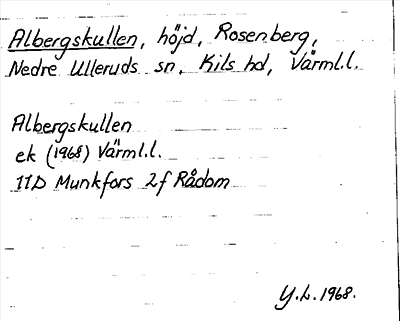 Albergskullen, höjd, Rosenberg,
Nedre Ulleruds sn, Kils hd, Värml.l.
Albergskullen
ek (1968) Värml.l.
11D Munkfors 2f Rådom
Y.L. 1968.